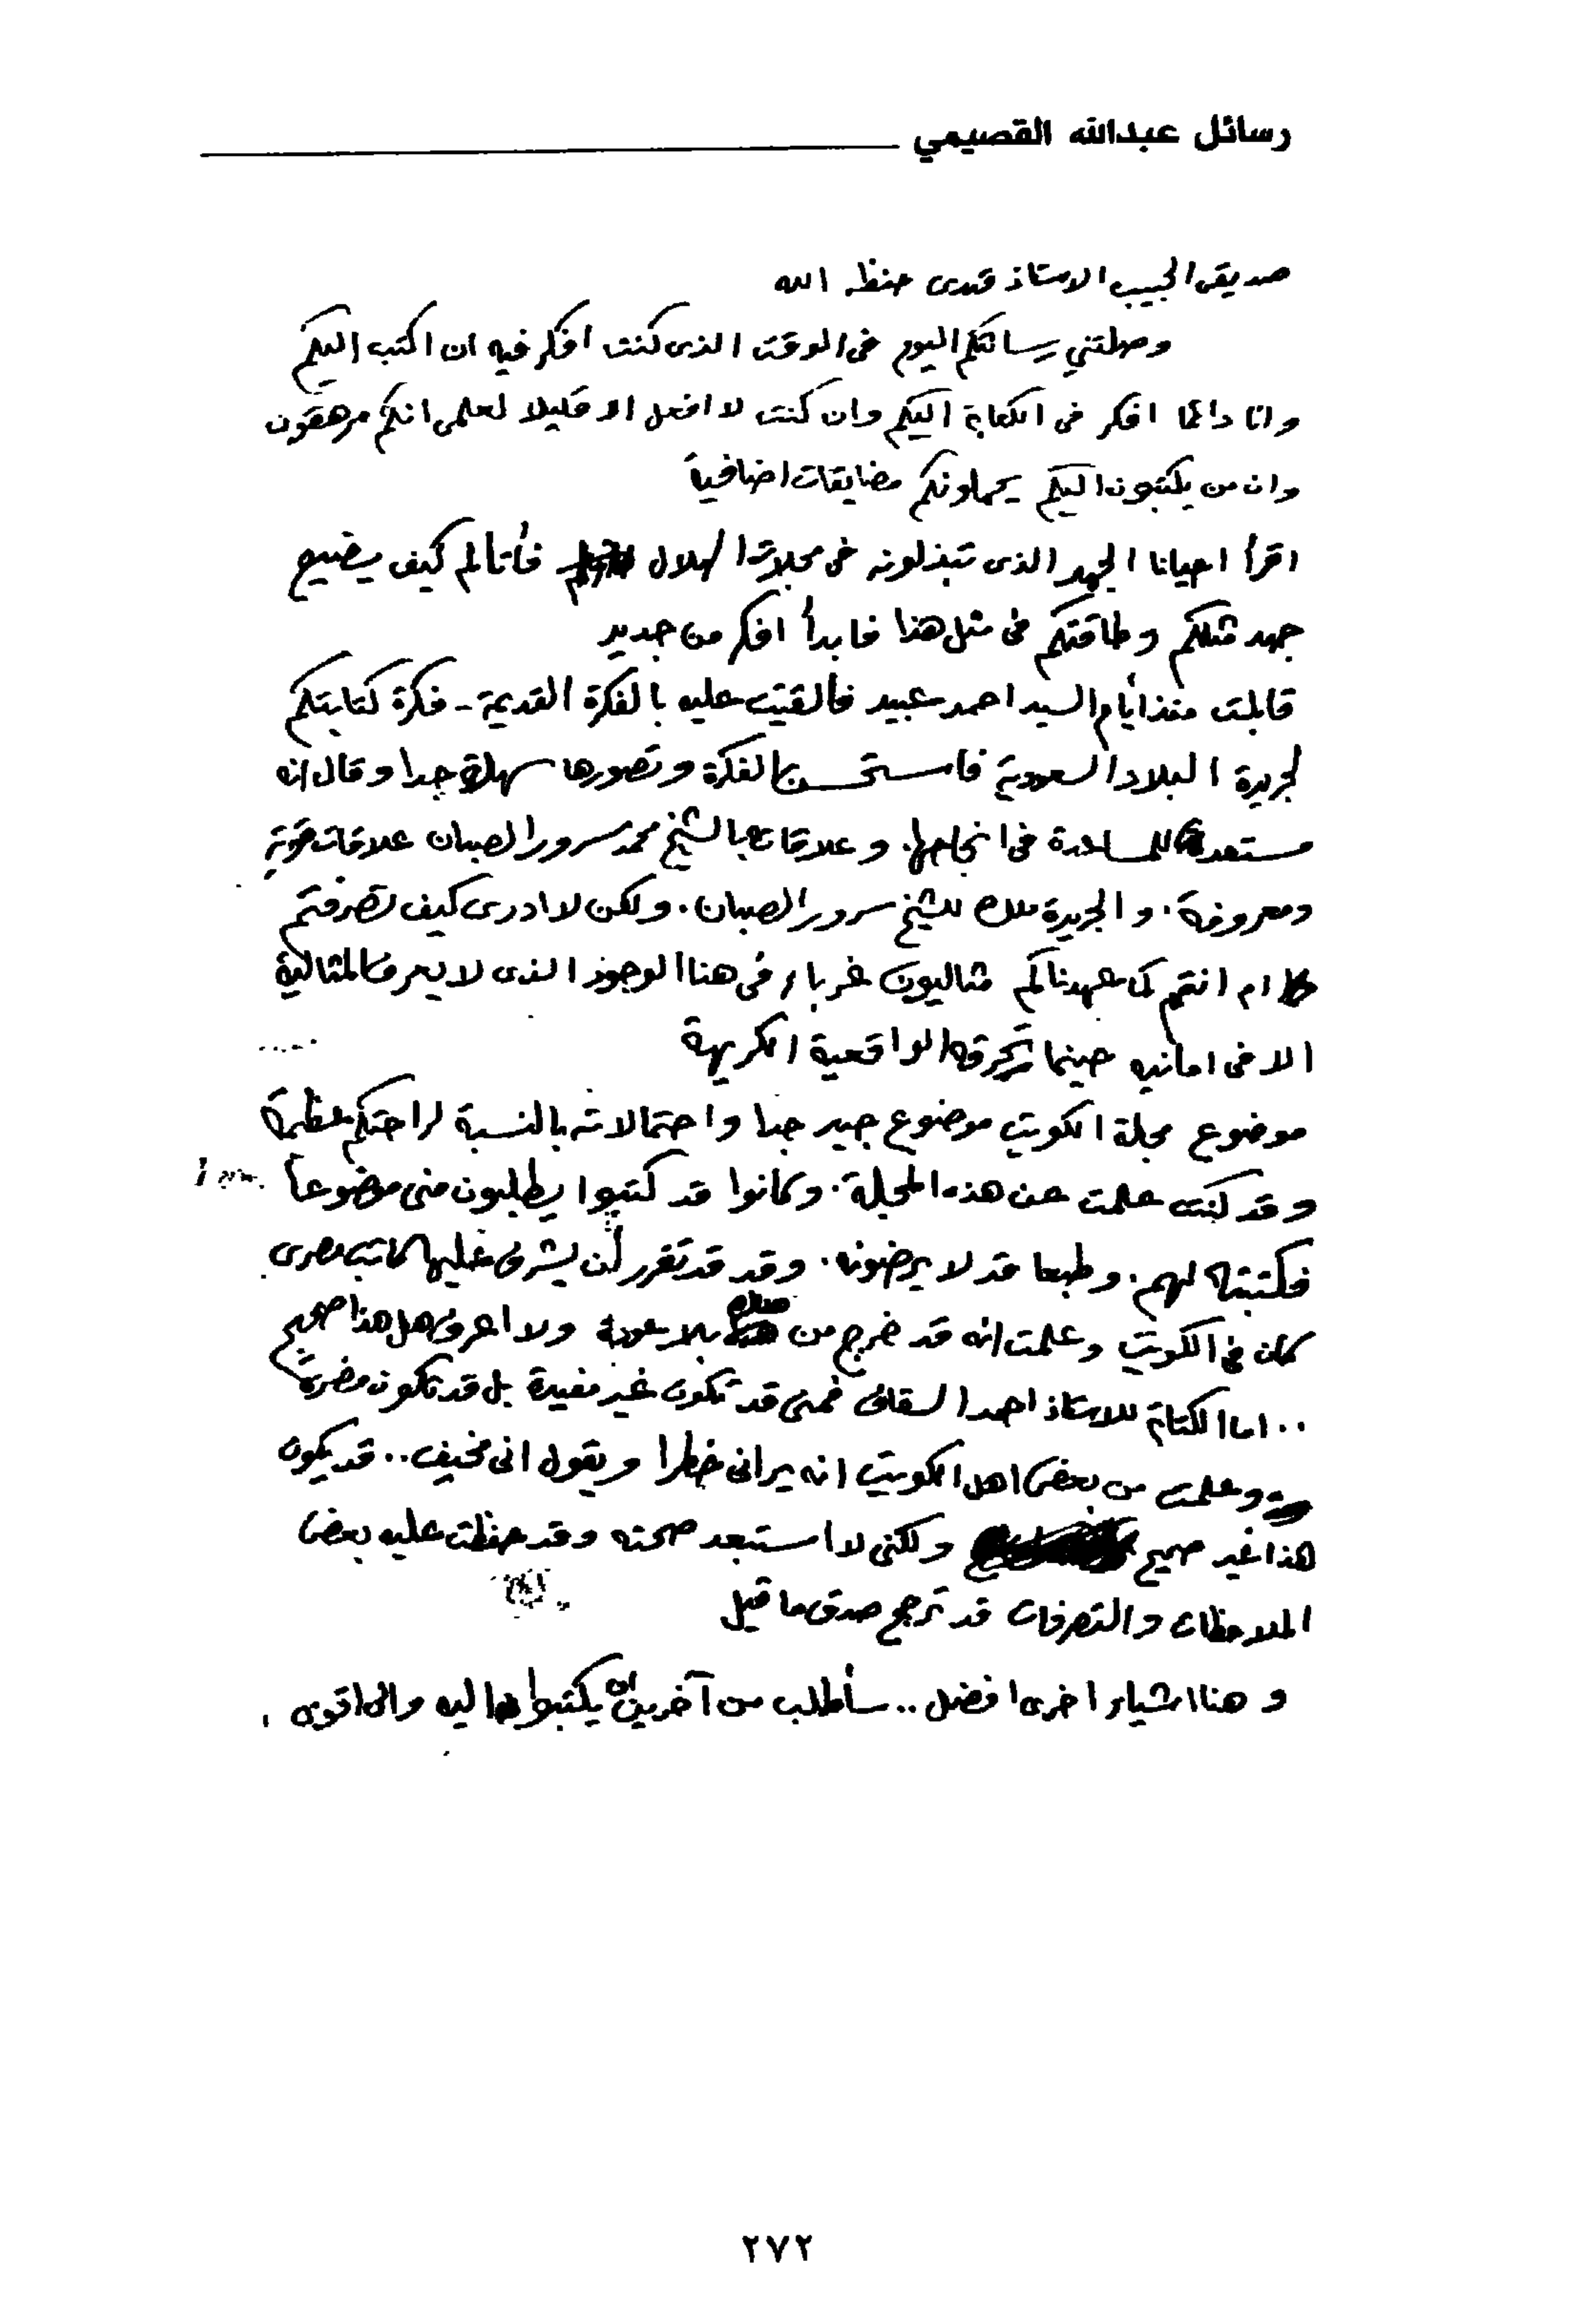 رسائل عبدالله القصيمي
صديقى الحبيب الاستاذ قدرى حفظه الله
وصلتني رسالتكم اليوم فى الوقت الذى كنت افكر فيه ان اكتب اليكم
وانا دائما افكر فى الكتابة اليكم وان كنت لا افعل الا قليلا لعلمى انكم مرهقون
وان من يكتبون اليكم يحملونكم مضايقات اضافياً
اقرأ احيانا الجهد الذى تبذلونه فى مجلات الهلال فأتألم كيف يضيع
جهد مثلكم وطاقتكم فى مثل هذا فابدأ افكر من جديد
قابلت منذ أيام السيد احمد عبيد فألقيت عليه بالفكرة القديمة - فكرة كتابتكم
لجريدة البلاد السعودية فاستحسن الفكرة وتصورها سهلة جدا وقال انه
مستعد للمساعدة فى انجاحها. وعلاقاته بالشيخ محمد سرور الصبان علاقات قوية
ومعروفة. والجريدة ملك للشيخ سرور الصبان. ولكن لا ادرى كيف تصرفتم
ام انتم كما عهدناكم مثاليون غرباء فى هذا الوجود الذى لا يعرف المثالية
الا فى امانيه حينما تحرقه الواقعية الكريهة
موضوع مجلة الكويت موضوع جيد جدا واحتمالاته بالنسبة لراحتكم عظيمة
وقد كنت علمت عن هذه المجلة. وكانوا قد كتبوا يطلبون منى موضوعاً
فكتبته لهم. وطبعا قد لا يرضونه. وقد قد تقرر أن يشرف عليها كاتب مصرى
كان في الكويت وعلمت انه قد خرج من بلا عودة ولا اعرف هل هذا صحيح
.. اما الكتابة للاستاذ احمد السقاف فمنى قد تكون غير مفيدة بل قد تكون مضرة
وعلمت من بعض اهل الكويت انه يرانى خطرا ويقول انى مخيف .. قد يكون
هذا غير صحيح ولكنى لا استبعد صحته وقد حفظت عليه بعض
الملاحظات والتصرفات قد ترجح صدق ما قيل
وهنا اشياء اخرى افضل .. سأطلب من آخرين ان يكتبوا اليه والى اقوى
٢٧٢